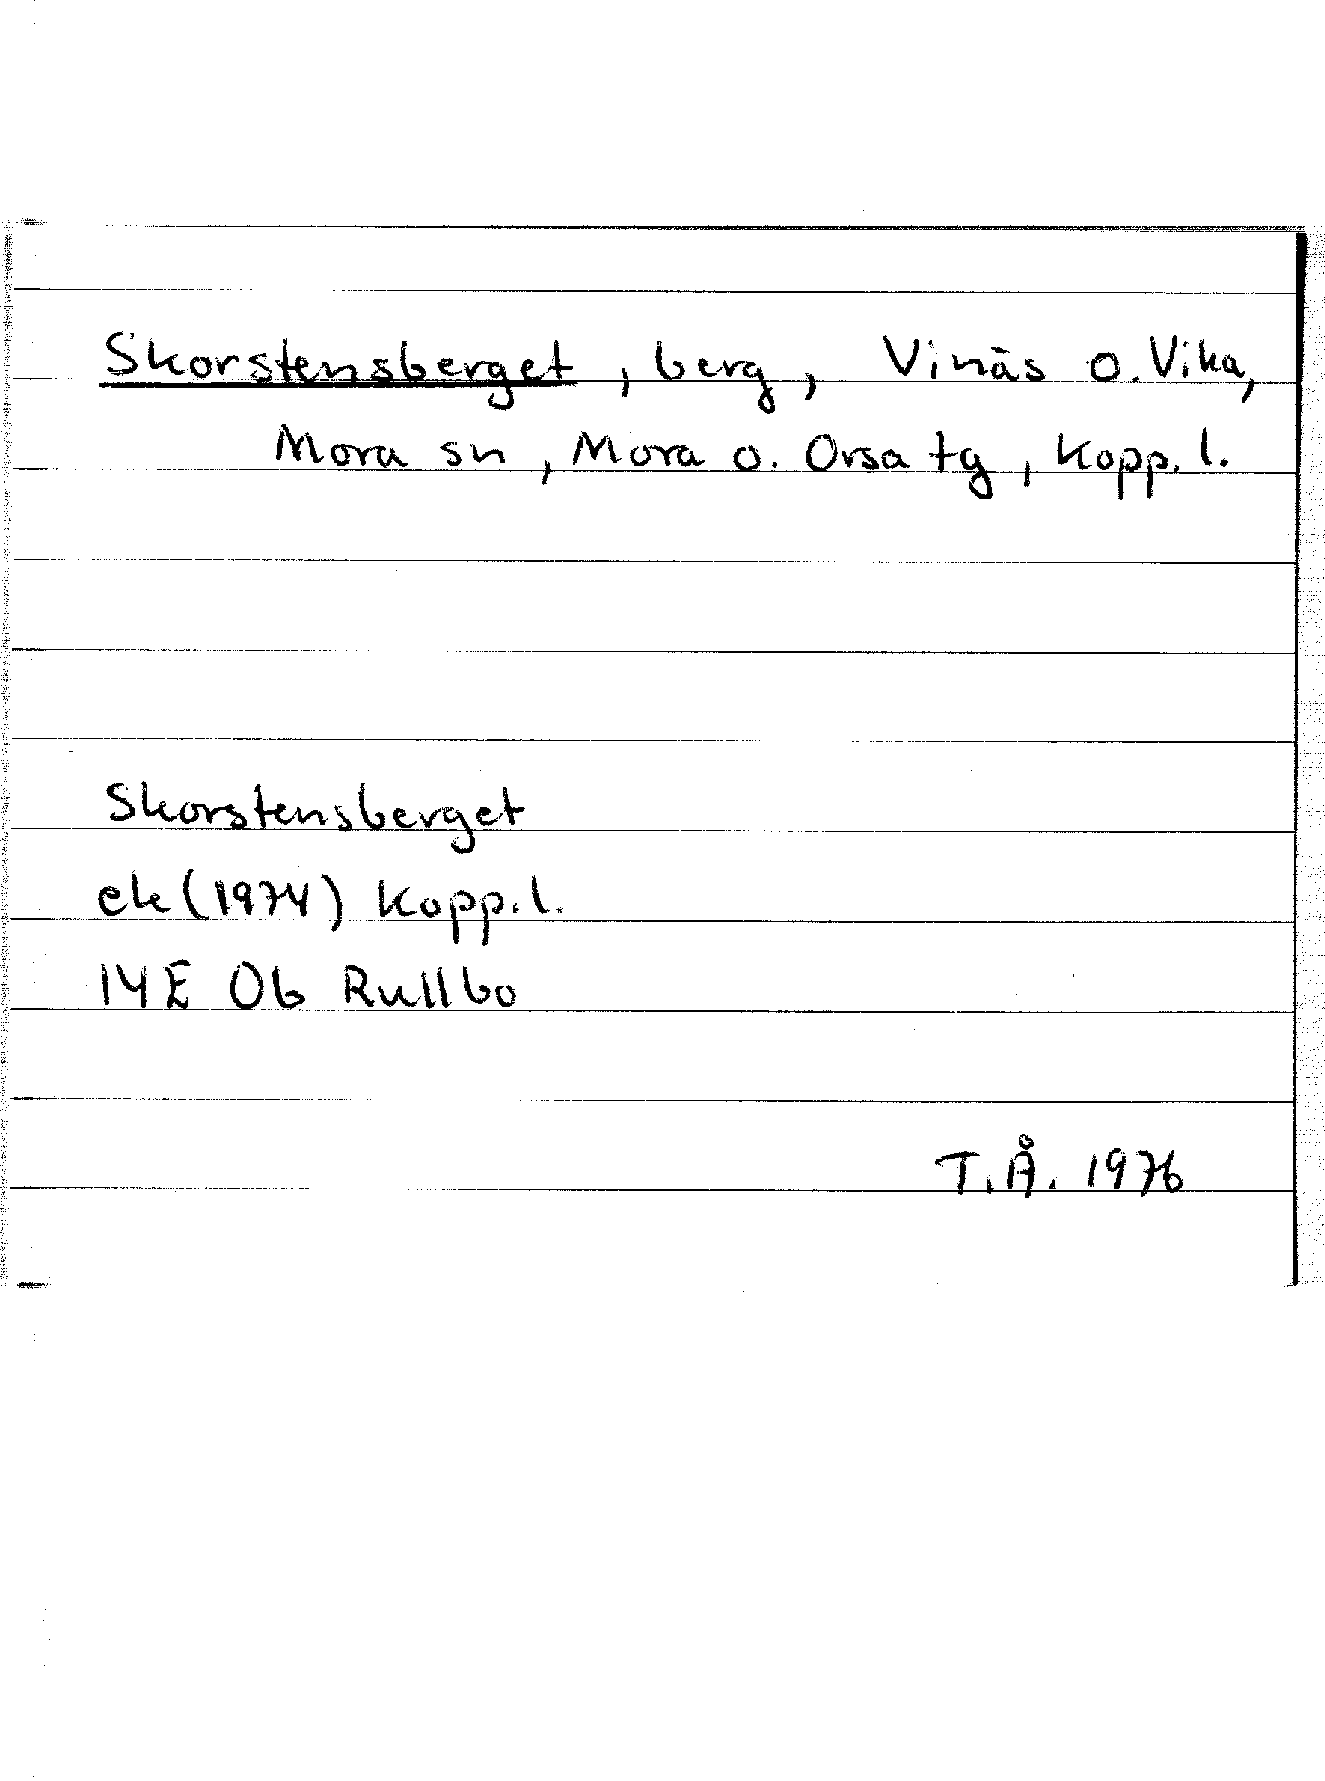 Skorstensberget, berg, Vinäs o. Vika,
Mora sn, Mora o. Orsa tg, Kopp. l.
Skorstensberget
ek (1974) Kopp. l.
14E 0b Rullbo
T.Å. 1976